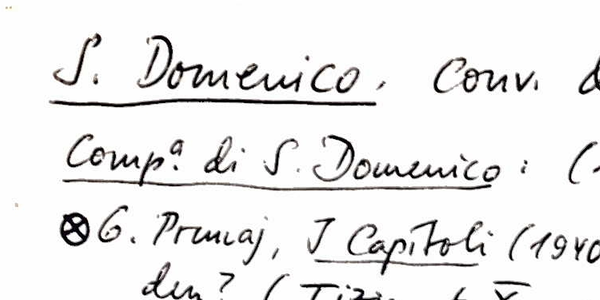 S. Domenico. Conv. d
Compª. di S. Domenico: (
⊗ G. Prunaj, I Capitoli (1940
den? (